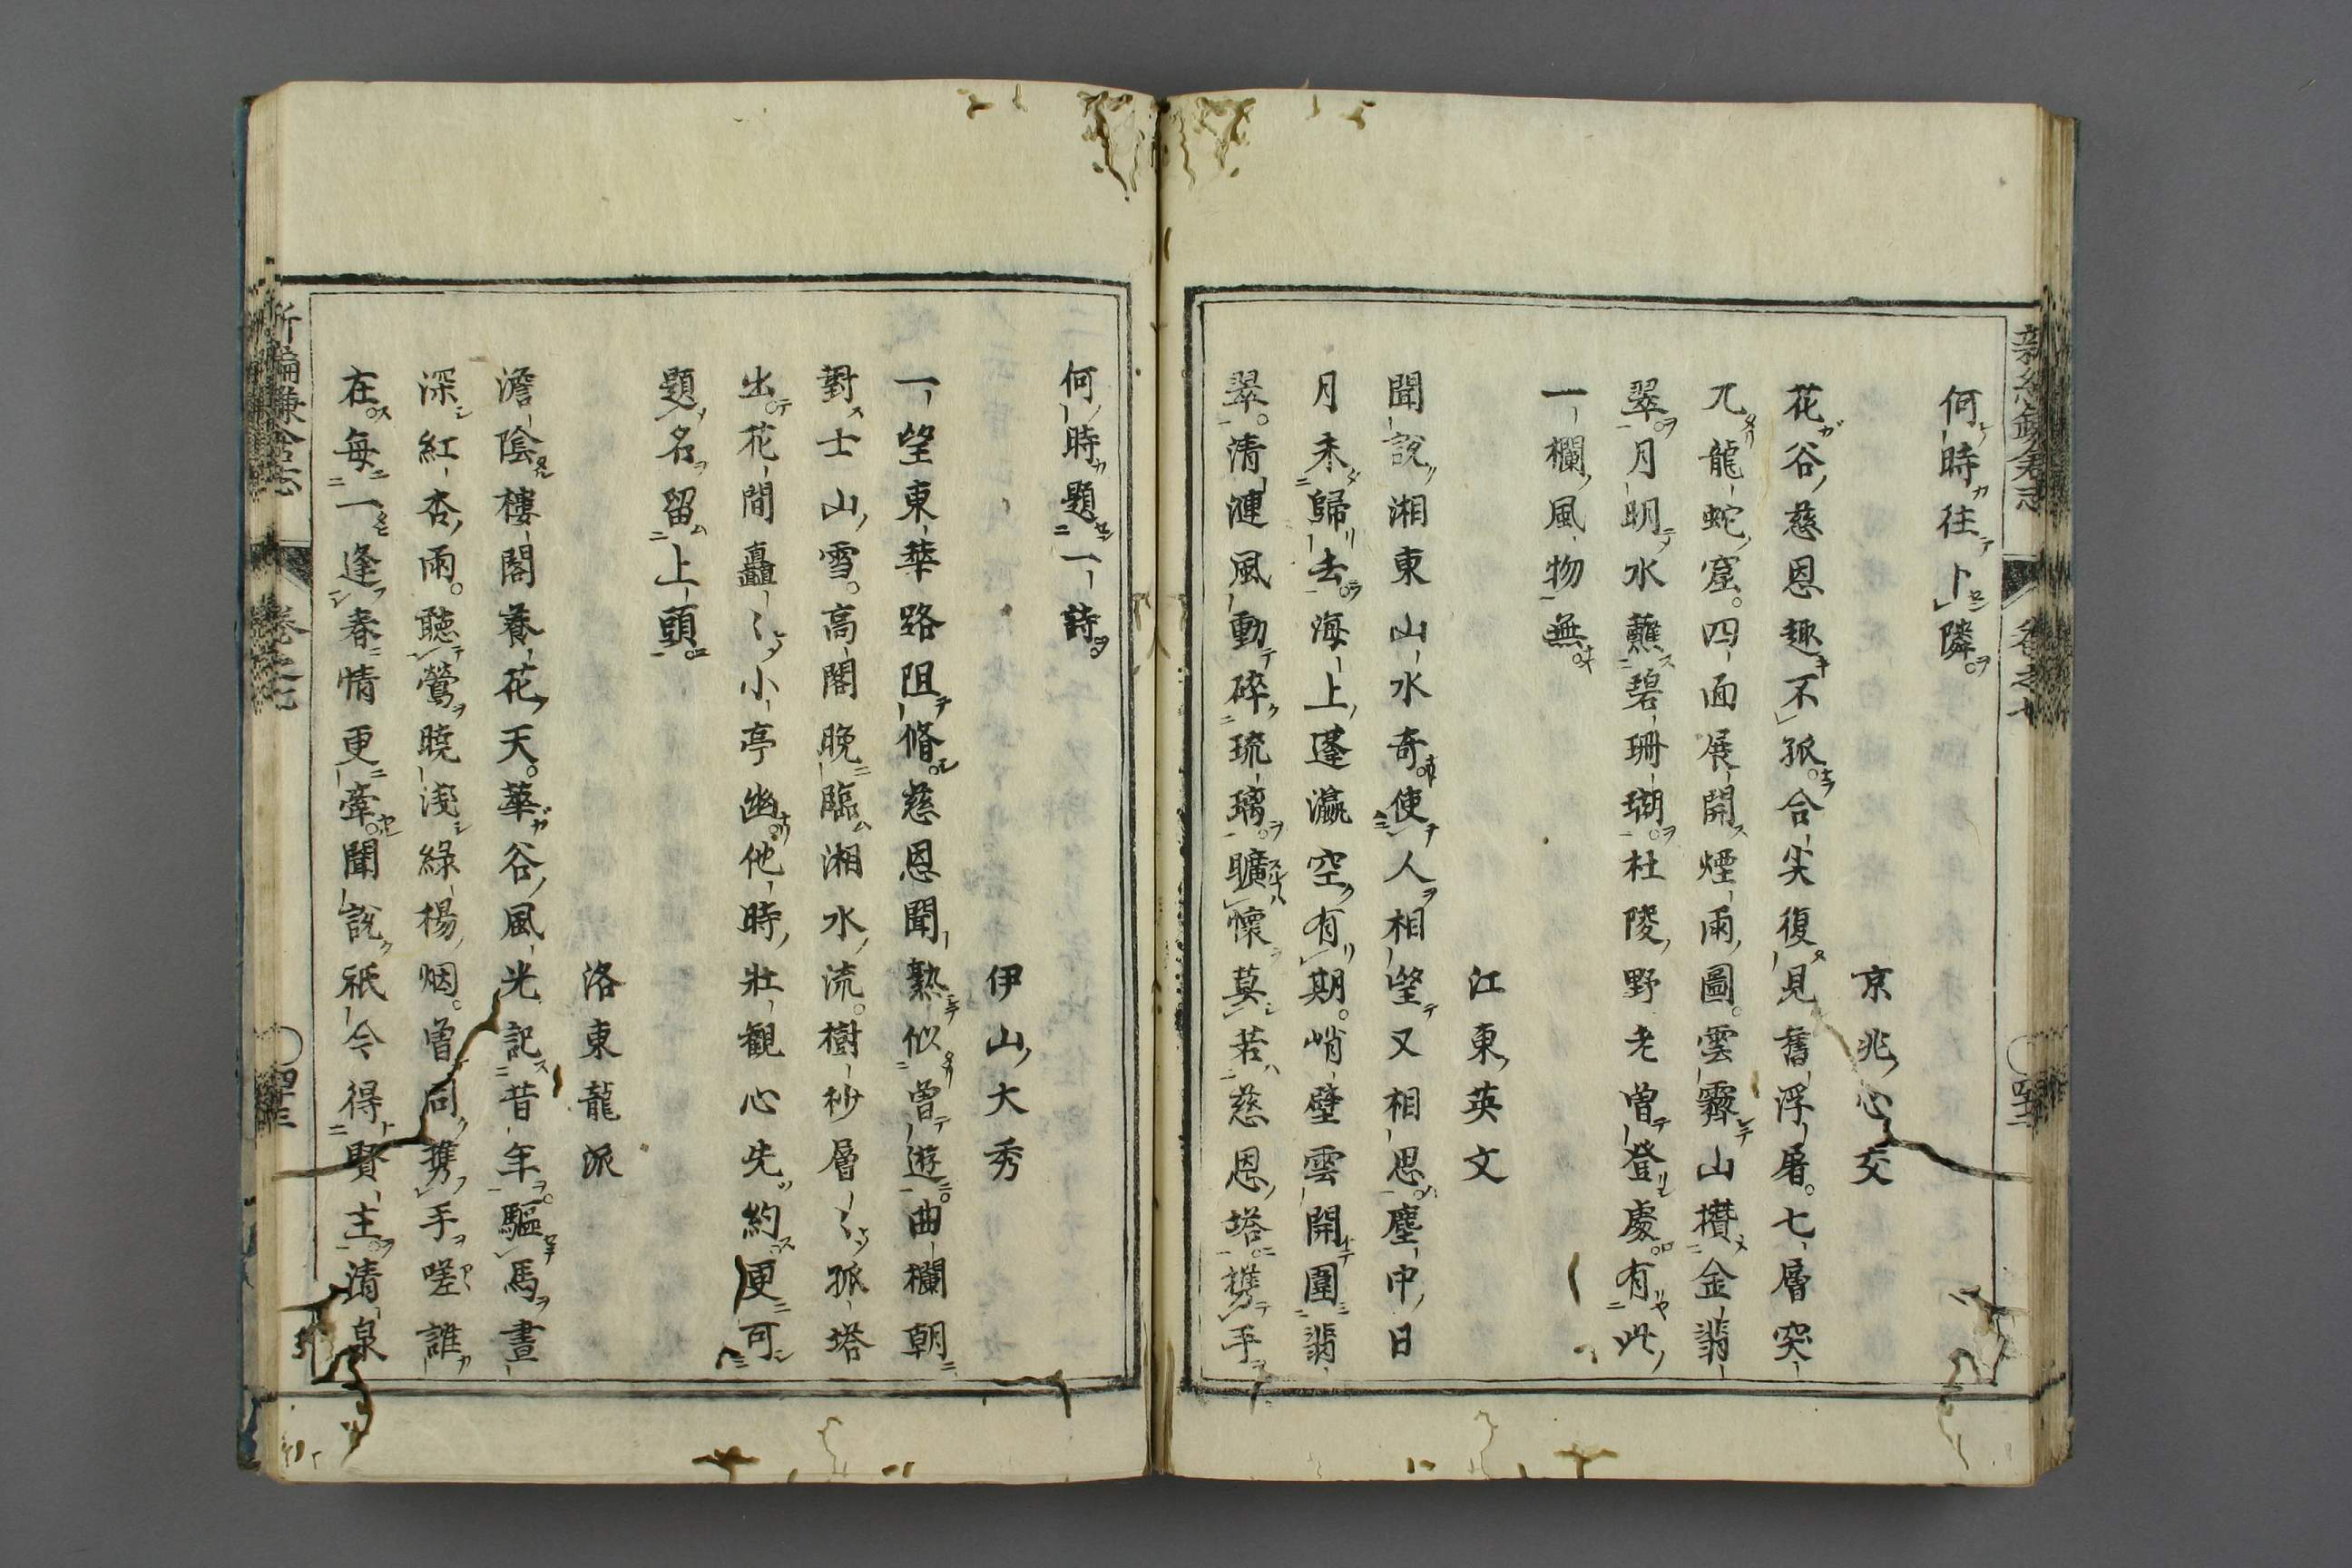 何時往卜隣
京兆心交
花谷慈恩趣不孤合尖復見舊浮屠七層突
兀龍蛇窟四面展開煙雨圖雲霽山攢金翡
翠月明水蘸碧珊瑚杜陵野老曽登處有此
一欄風物無
江東英文
聞說湘東山水奇使人相望又相思塵中日
月未歸去海上蓬瀛空有期峭壁雲開圍翡
翠清漣風動碎琉璃曠懷莫若慈恩塔携手
何時題一詩
伊山大秀
一望東華路阻脩慈恩聞熟似曽遊曲欄朝
對士山雪高閣晚臨湘水流樹杪層〻孤塔
出花間矗〻小亭幽他時壯観心先約更可
題名留上頭
洛東龍派
澹陰樓閣養花天華谷風光記昔年驅馬晝
深紅杏雨聴鶯曉淺綠楊烟曽同携手嗟誰
在每一逢春情更牽聞說祇今得賢主清泉
新編鎌倉志
卷之七